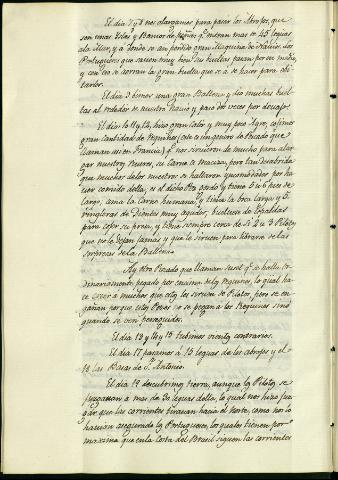 El dia 7 y 8 nos alargamos para pasar los Abrojos, que
son unas Islas y Bancos de peñas q.e entran mas de 45 leguas
a la Mar, y a donde se an perdido gran Maquina de Navios. Los
Portugueses que saven muy bien sus bueltas pasan por en medio,
y con eso se aorran la gran buelta que se a de hacer para evi-
tarlos.
El dia 9 vimos una gran Ballena y dio muchas buel-
tas al rededor de nuestro Navio y pasó dos veces por devajo.
El dia 10 11 y 12, hizo gran calor y muy poco Ayre, cojimos
gran cantidad de Requines (este es un genero de Pescado que
llaman asi en Francia) q.e nos sirvieron de mucho para alar-
gar nuestros Viveres, su carne es maciza, pero tan desabrida
que muchos de los nuestros se hallaron incomodados por ha-
ver comido della, es el dicho Pez gordo y tiene 5 u 6 pies de
largo, ama la carne humana, y tiene la boca larga y 5
rengleras de Dientes muy agudos, buelvese de Espaldas
para cojer su presa, y tiene siempre cerca de si 2 u 3 Pilotos
que no lo dejan jamas y que le sirven para librarse de las
sorpresas de la Ballena.
Ay otro Pescado que llaman suset q.e se halla or-
dinariamente pegado por encima de los Requines, lo qual ha-
ce creer a muchos que estos les sirven de Pilotos, pero se en-
gañan porque estos Peces no se pegan a los Requines sino
quando se ven perseguidos.
El dia 13 y 14 y 15 tubimos viento contrarios.
El dia 17 pasamos a 15 leguas de los abrojos y el
18 las Baxas de S.n Antonio.
El dia 19 descubrimos tierra, aunque los Pilotos se
juzgavan a mas de 30 leguas della, lo qual nos hizo juz-
gar que las corrientes tiravan hacia el Norte, como nos lo
havian asegurado los Portugueses, los quales tienen por
maxima que en la Costa del Brasil siguen las corrientes